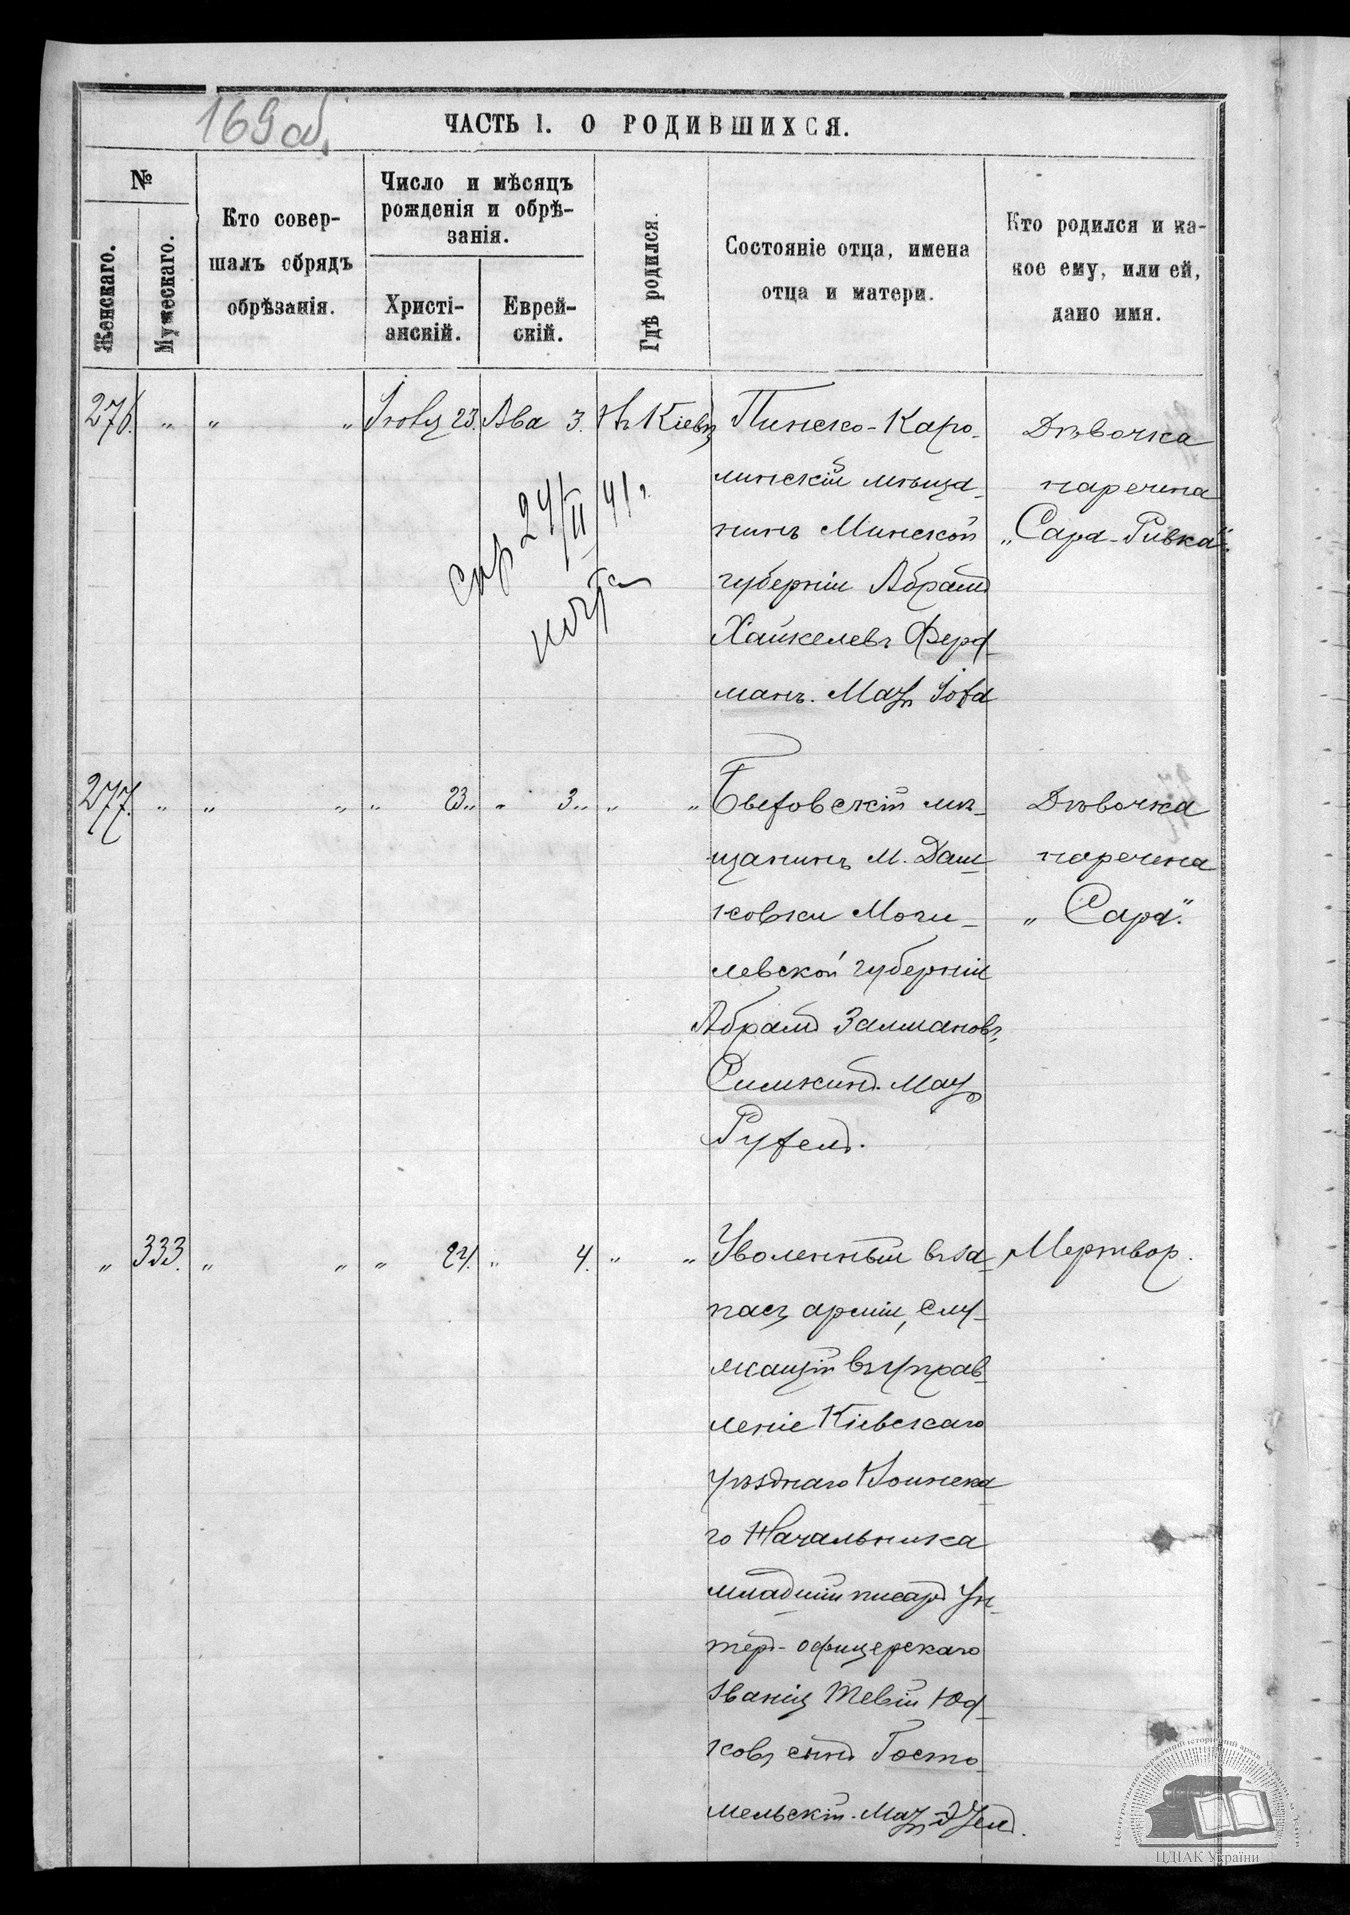 169 об.
ЧАСТЬ I. О РОДИВШИХСЯ.
№
Женскаго.
Мужескаго.
Кто совер-
шалъ обрядъ
обрѣзанія.
Число и мѣсяцъ
рожденія и обрѣ-
занія.
Христі-
анскій.
Еврей-
скій.
Гдѣ родился.
Состояніе отца, имена
отца и матери.
Кто родился и ка-
кое ему, или ей,
дано имя.
276. " " " Іюля 23. Ава 3. Въ Кіевѣ
Пинско-Каро-
линскій мѣща-
нинъ Минской
губерніи Абрамъ
Хайкелевъ Фердф-
манъ. Мать Іота
Дѣвочка
наречена
"Сара-Ривка".
спр 24/II 41 г.
277. " " " " 23 " " 3 " " "
мѣ-
щанинъ М. Даш-
ковки Моги-
левской губерніи
Абрамъ Залмановъ
Симкинъ. Мать
Рухель.
Дѣвочка
наречена
"Сара".
" 333. " " " 24. " 4. " "
Уволенный въ за-
пасъ арміи, слу-
жащій въ Управ-
леніе Кіевскаго
уѣзднаго Воинска
го Начальника
младшій писарь Ун-
теръ-офицерскаго
званія Тевій Юд-
ковъ сынъ Госто-
мельскій. Мать Этель.
Мертвор.
ЦДІАК України